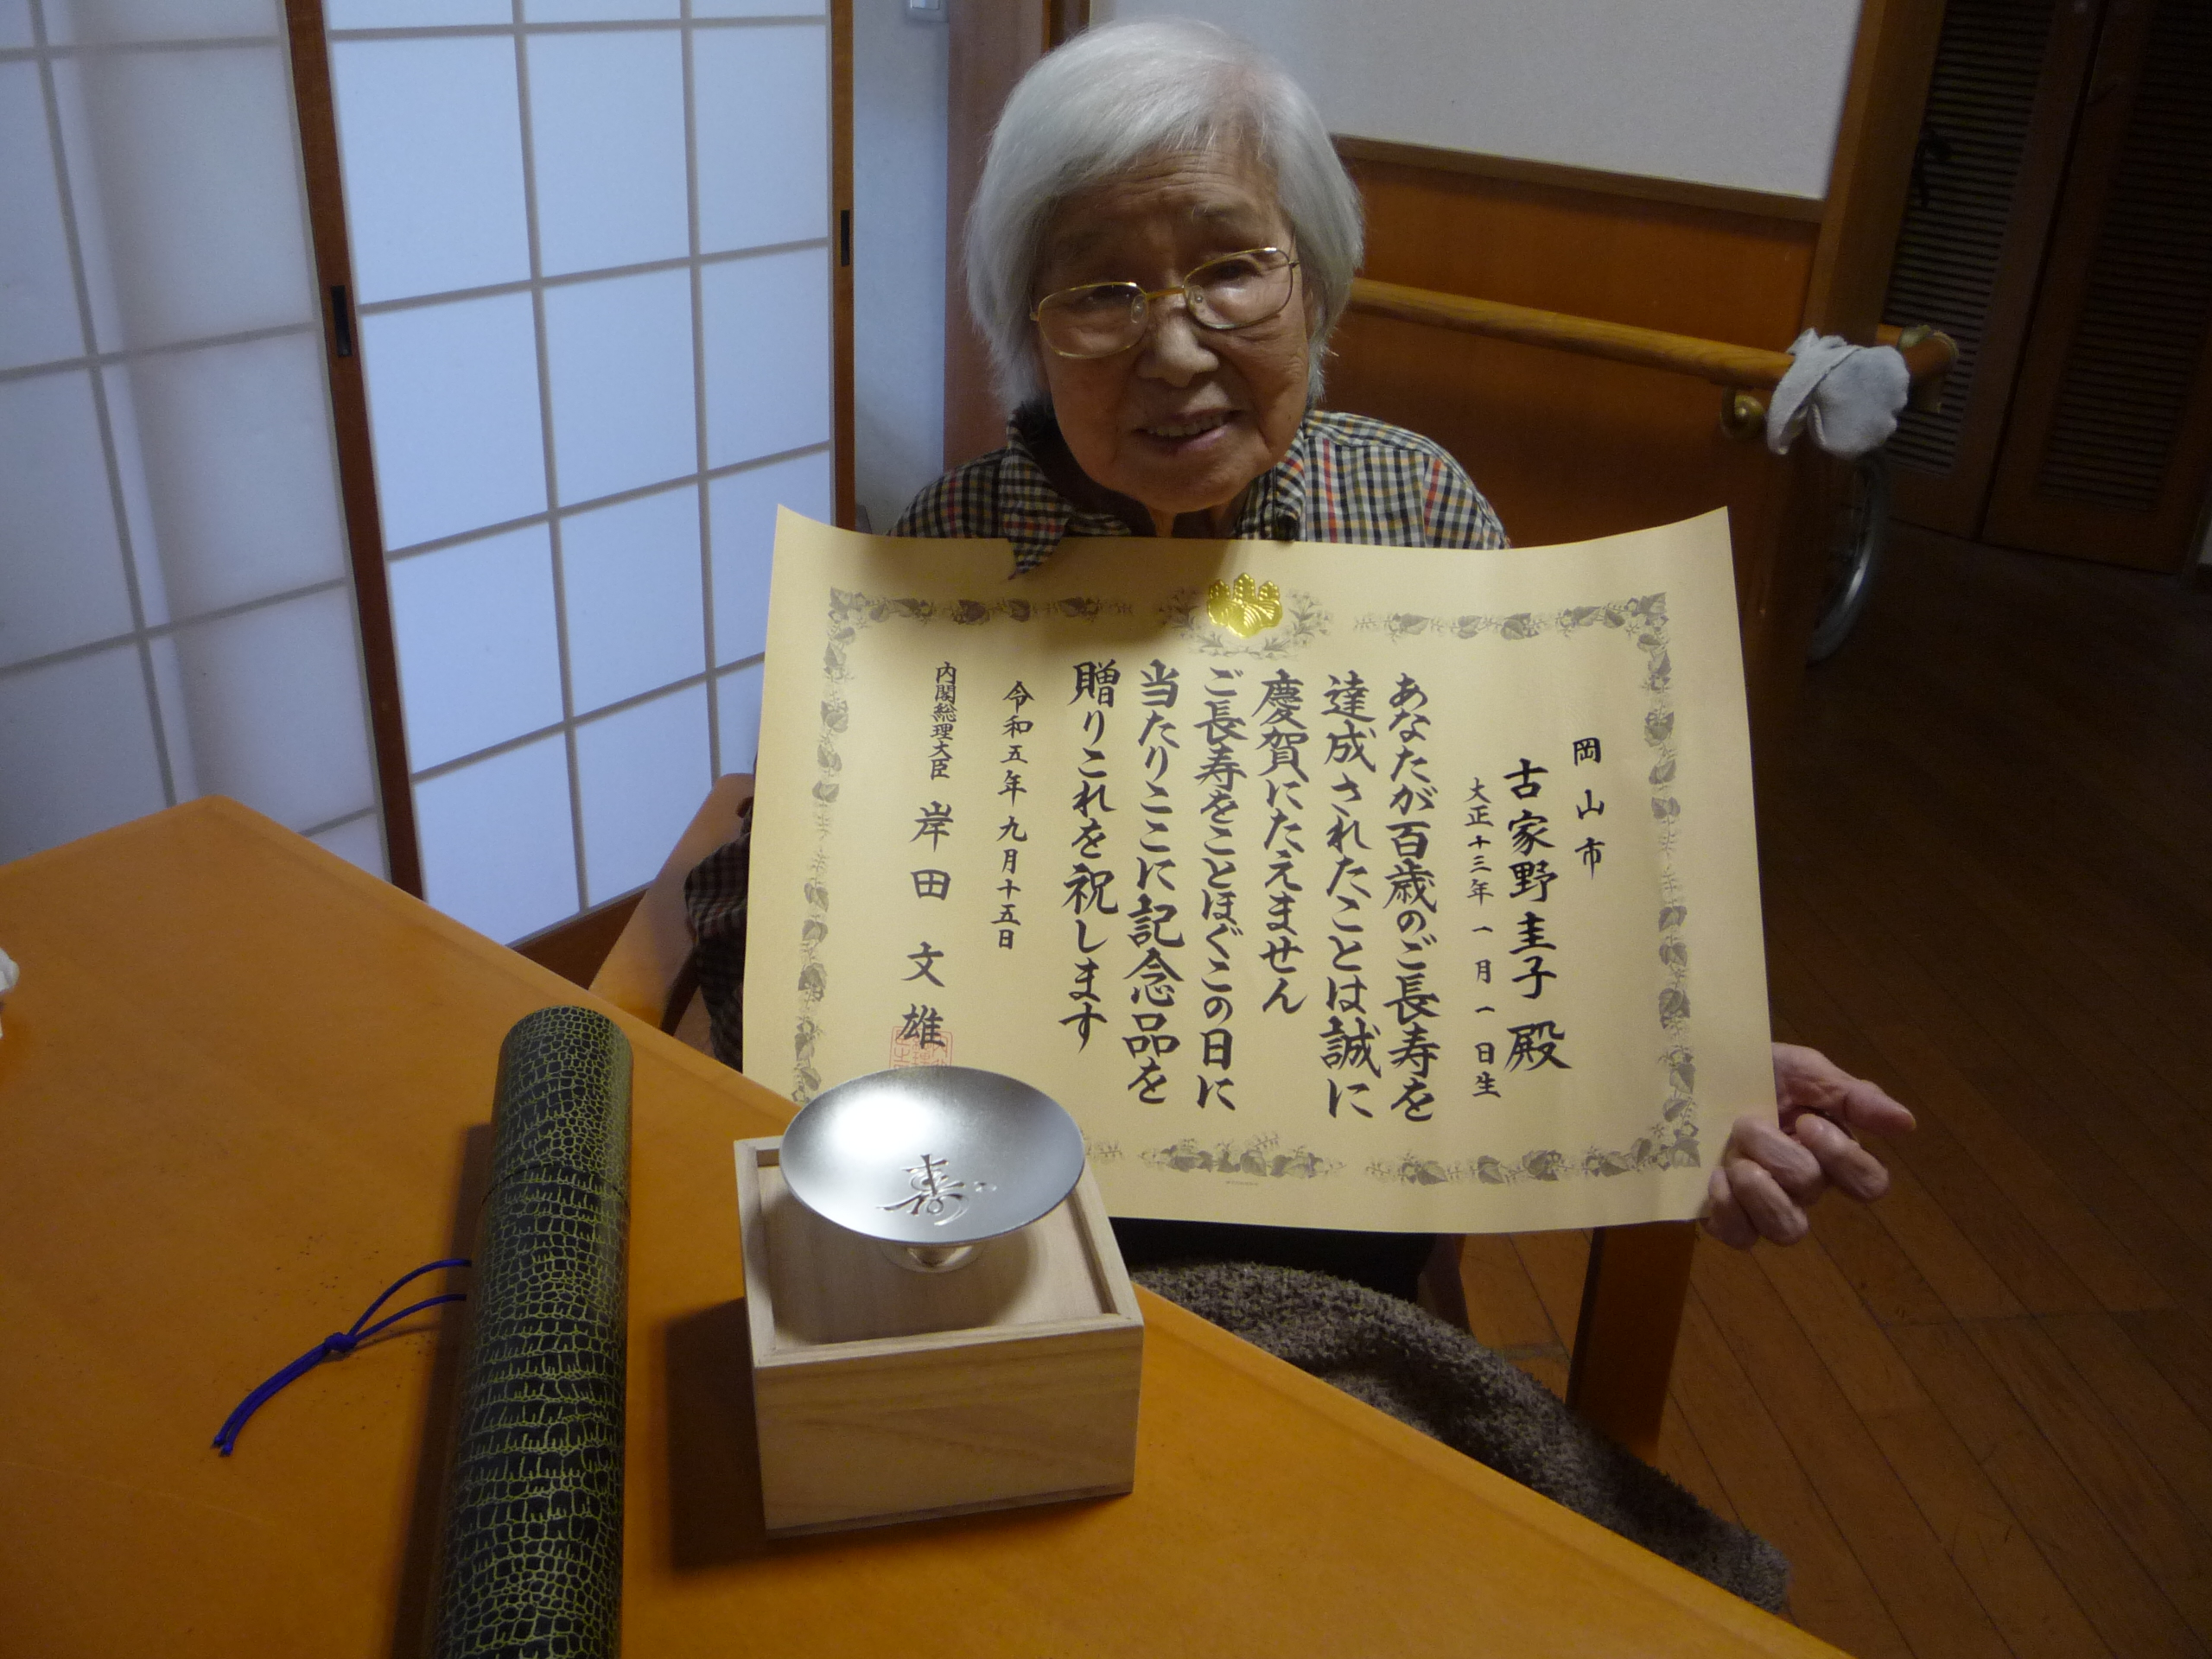 岡山市
古家野圭子殿
大正十三年一月一日生
あなたが百歳のご長寿を
達成されたことは誠に
慶賀にたえません
ご長寿をことほぐこの日に
当たりここに記念品を
贈りこれを祝します
令和五年九月十五日
内閣総理大臣 岸田文雄
寿